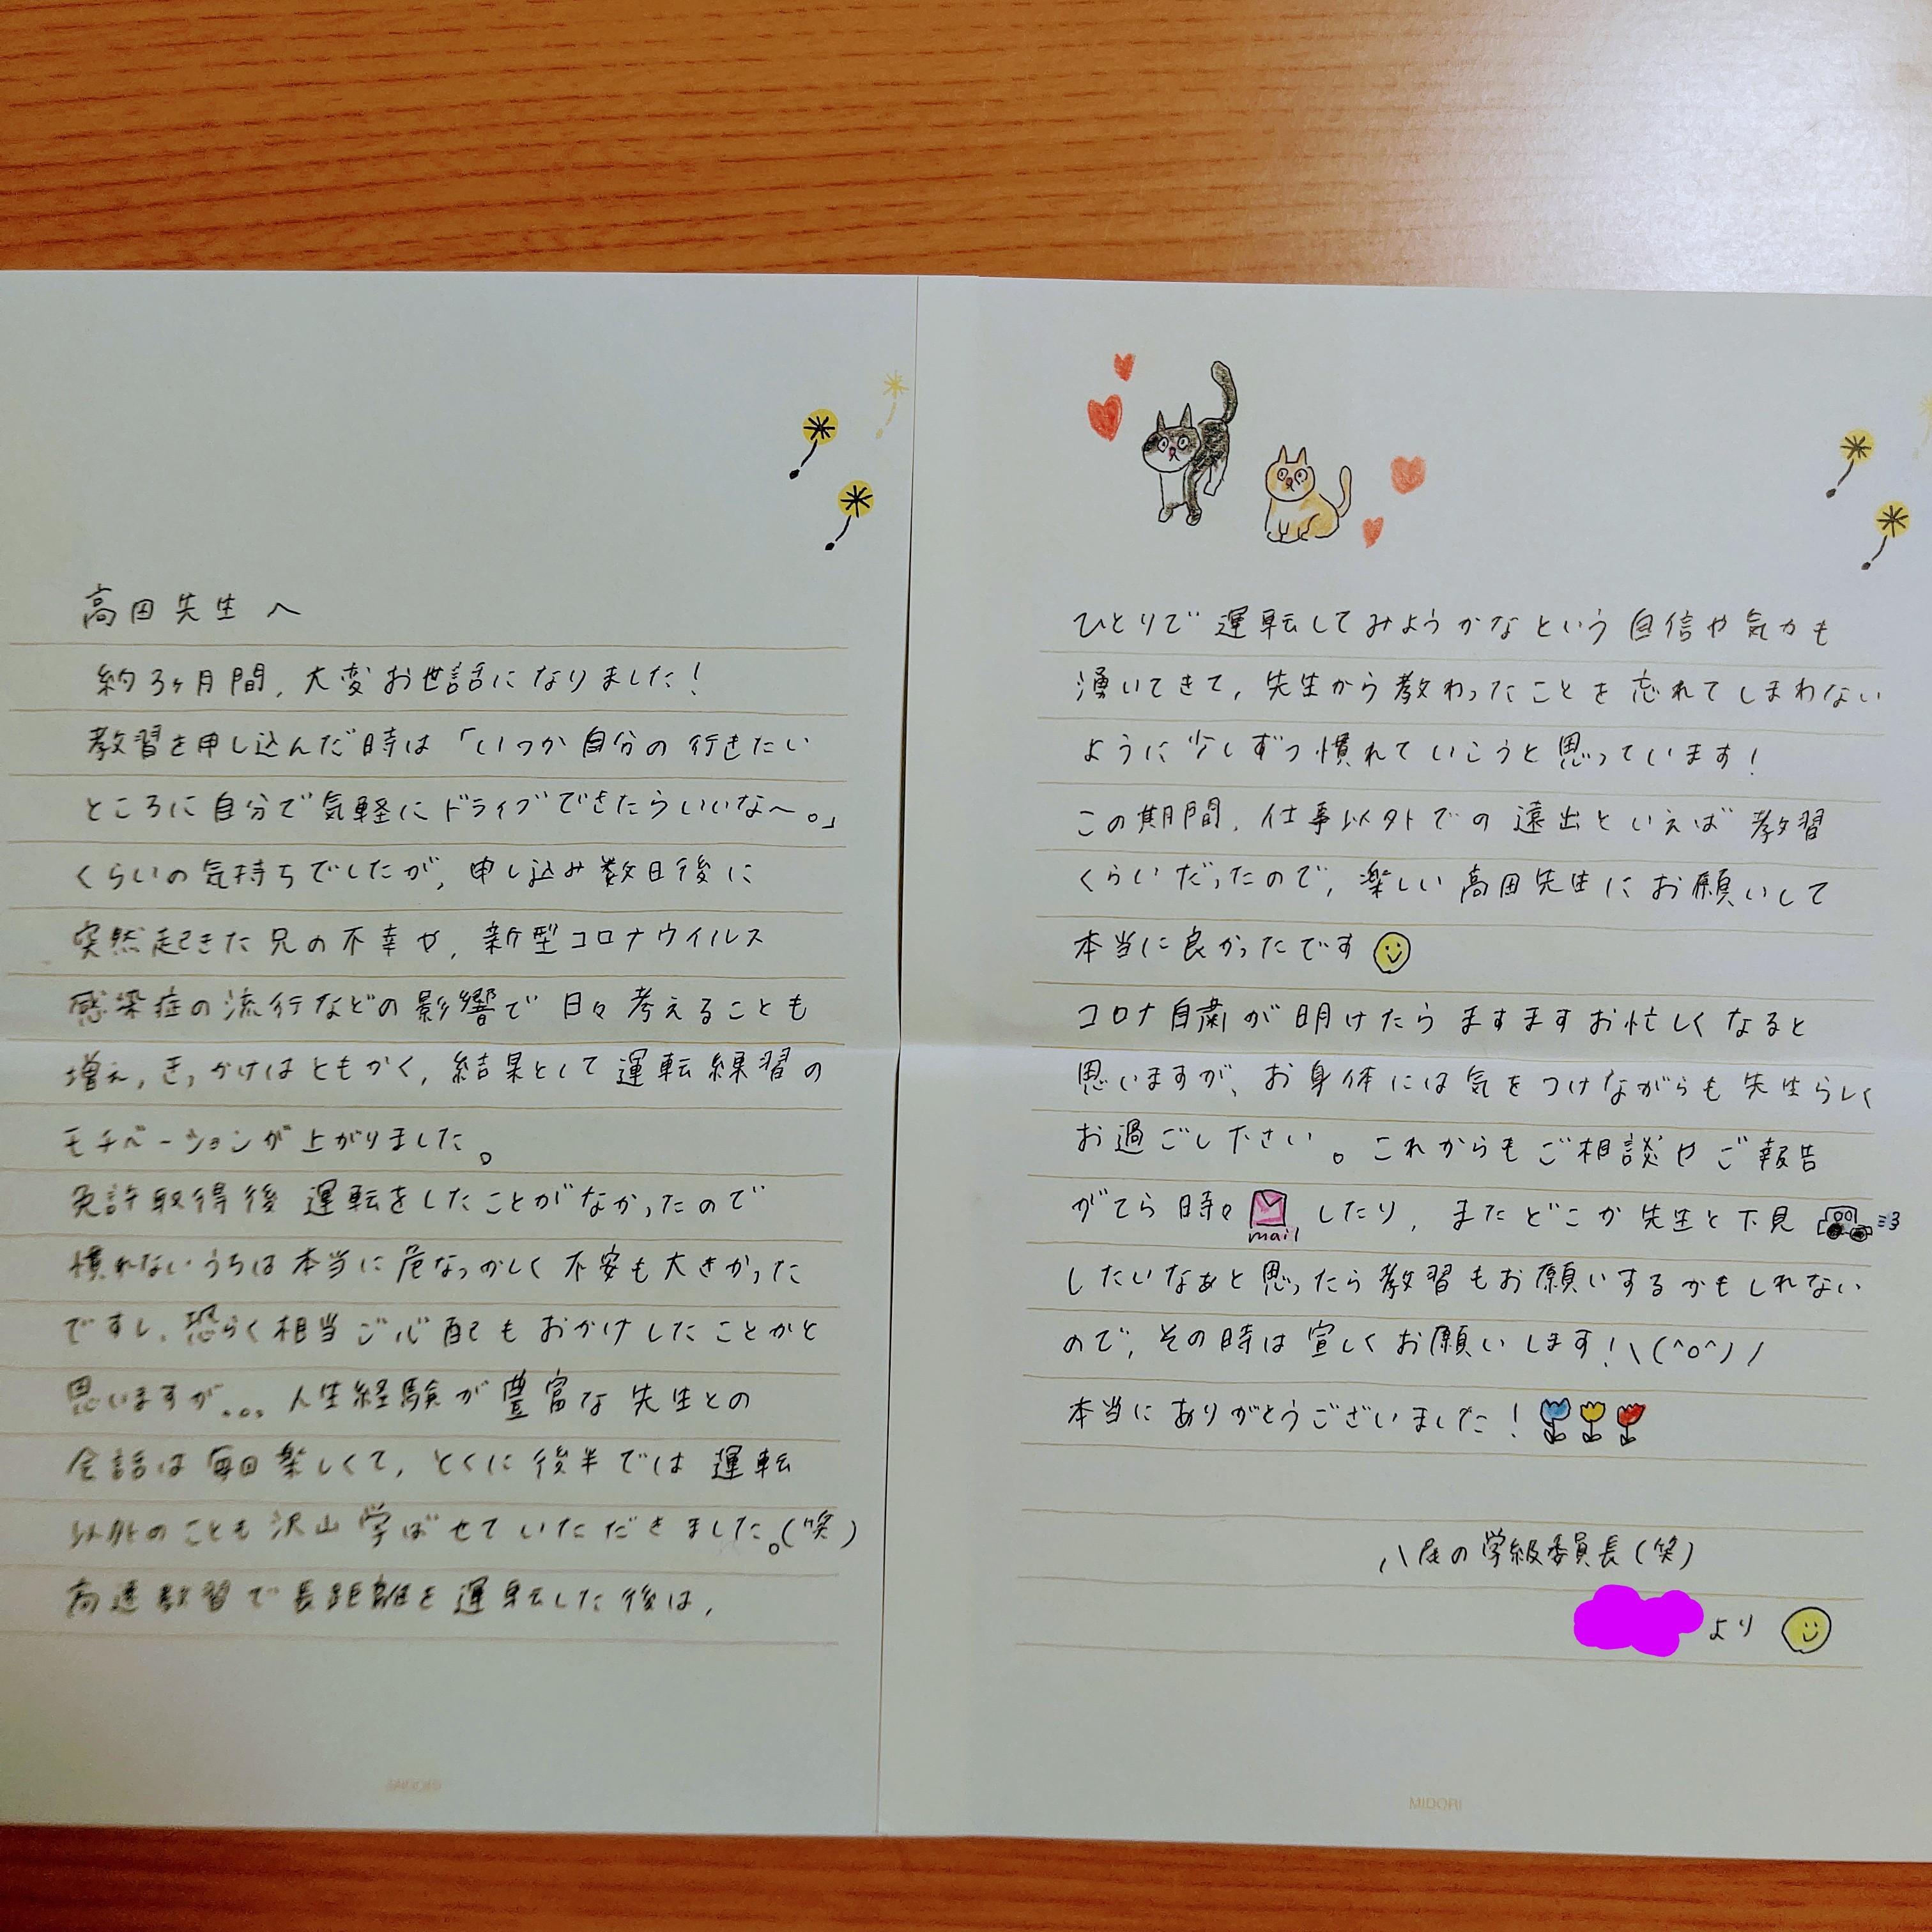 高田先生へ
約3ヶ月間、大変お世話になりました！
教習を申し込んだ時は「いつか自分の行きたい
ところに自分で気軽にドライブできたらいいな〜。」
くらいの気持ちでしたが、申し込み数日後に
突然起きた兄の不幸や、新型コロナウイルス
感染症の流行などの影響で日々考えることも
増え、きっかけはともかく、結果として運転練習の
モチベーションが上がりました。
免許取得後運転をしたことがなかったので
慣れないうちは本当に危なっかしく不安も大きかった
ですし、恐らく相当ご心配もおかけしたことかと
思いますが... 人生経験が豊富な先生との
会話は毎回楽しくて、とくに後半では運転
以外のことも沢山学ばせていただきました。(笑)
高速教習で長距離を運転した後は、
MIDORI
ひとりで運転してみようかなという自信や気力も
湧いてきて、先生から教わったことを忘れてしまわない
ように少しずつ慣れていこうと思っています！
この期間、仕事以外での遠出といえば教習
くらいだったので、楽しい高田先生にお願いして
本当に良かったです
コロナ自粛が明けたらますますお忙しくなると
思いますが、お身体には気をつけながらも先生らしく
お過ごし下さい。これからもご相談やご報告
がてら時々 mail したり、またどこか先生と下見
したいなぁと思ったら教習もお願いするかもしれない
ので、その時は宜しくお願いします！\(^o^)/
本当にありがとうございました！
八尾の学級委員長(笑)
より
MIDORI